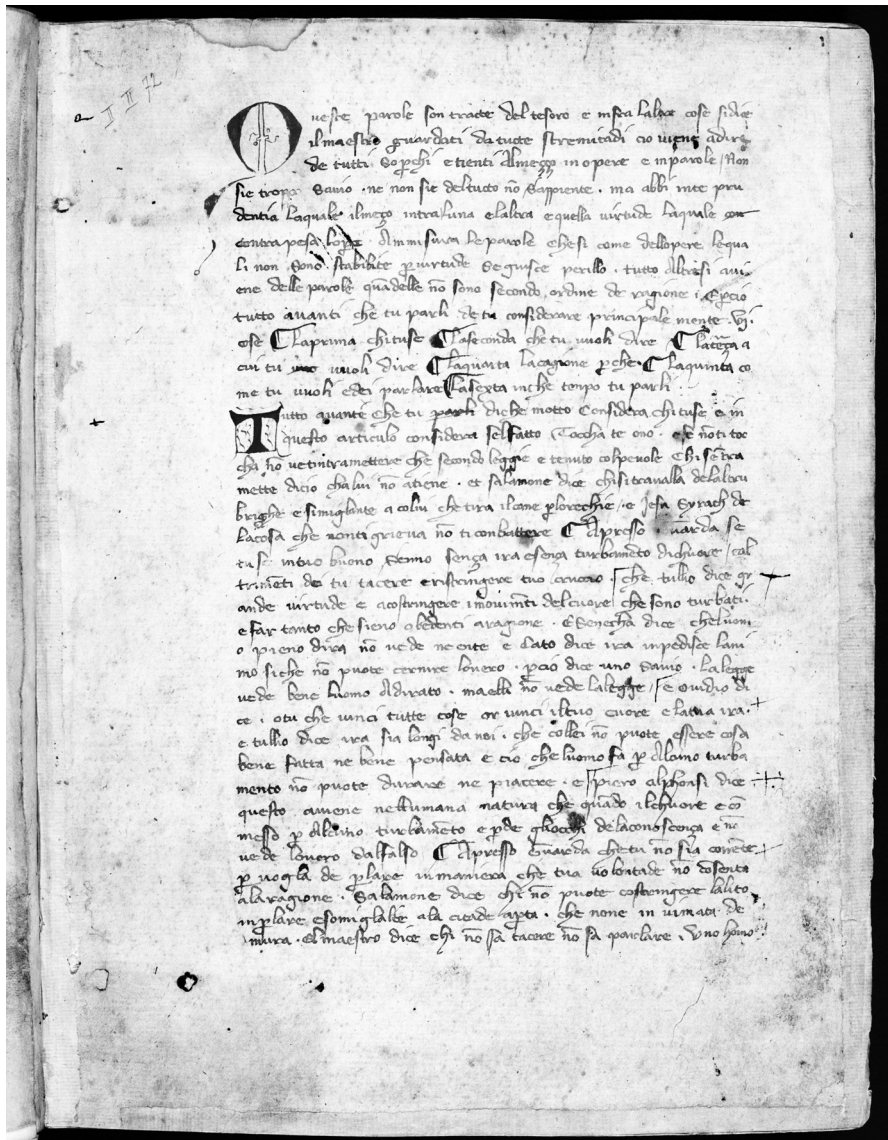 II II 72
Queste parole son tracte del tesoro e infra laltre cose si dice
il maestro guardati da tucte stremitadi cio viene a dire
de tutti Soꝑchi e tienti Almeçço in opere e in parole / Non
sie troppo Savio · ne non sie del tucto nō Sappiente · ma abbi inte pru
dentia Laquale · ilmeço intra luna e laltra e quella virtude Laquale
contrapesa · Amisura le parole che si come dellopere lequa
li non Sono stabilite ꝑ virtude Se guisce perillo · tutto Altresi avi
ene delle parole quadelle nō sono secondo ordine de ragione · Eꝑcio
tutto avanti che tu parli de tu considerare principale mente · vj ·
cose ¶ Laprima chi tuse ¶ Laseconda che tu vuoli dire ¶ Laterça a
cui tu vuoli dire ¶ Laquarta Lacagione ꝑche · ¶ Laquinta co
me tu vuoli e dei parlare ¶ Lasexta in che tenpo tu parli ·
Tutto avante che tu parli diche motto Considera chi tuse e in
questo articulo considera sel fatto Toccha te o no · e se nōti toc
cha nō ve tintramettere che secondo leggie e tenuto colpevole Chi sentra
mette di cio cha lui nō atiene · et Salamone dice chi si travalla delaltru
brighe e simiglante a colui che tira il cane ꝑ lorechie · e Jesu Syrach de
Lacosa che non ti grieva nō ti conbattere ¶ Apresso Guarda se
tu se in tuo buono Senno sença ira e sença turbamēto di chuore · cal
trimēti de tu tacere e ristringere tuo cruccio · che tullio dice gr
ande virtude e a costringere i movimēti del cuore che sono turbati ·
e far tanto che sieno obedenti a ragione · E Senecha dice che luom
o pieno dira nō vede ne ente e Cato dice ira inpedisce lani
mo si che nō puote cernire lovero · ꝑcio dice uno Savio · La legge
vede bene luomo Adirato · ma elli nō vede la legge / e Ovidio di
ce · o tu che vinci tutte cose or vinci il tuo cuore e la tua ira ·
e tullio dice ira sia longi da noi · che collei nō puote essere cosa
bene fatta ne bene pensata e cio che luomo fa ꝑ Alcuno turba
mento nō puote durare ne piacere · e piero alphonsi dice
questo aviene nellumana natura che quādo il chuore e cō
messo ꝑ Alcuno turbamēto e ꝑde gliocchi de la conoscença e nō
vede lovero dal falso ¶ Apresso Guarda che tu nō sia corrēte
ꝑ vogla de ꝑlare in maniera che tua volontade nō cōsenta
alaragione · Salamone dice chi nō puote costringere lalito
in ꝑlare e somiglabele a la citade aꝑta · che none in vironata de
mura · El maestro dice chi nō sa tacere nō sa parlare · Uno homo